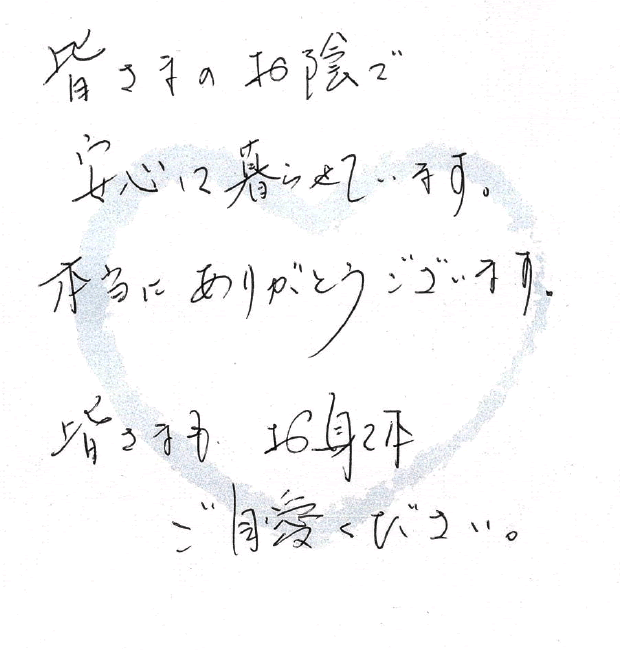 皆さまのお陰で
安心に暮らせています。
本当にありがとうございます。
皆さまも お身体
ご自愛ください。